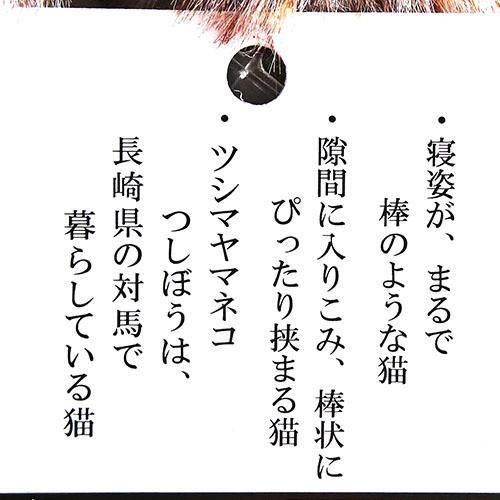 ・寝姿が、まるで
棒のような猫
・隙間に入りこみ、棒状に
ぴったり挟まる猫
・ツシマヤマネコ
つしぼうは、
長崎県の対馬で
暮らしている猫